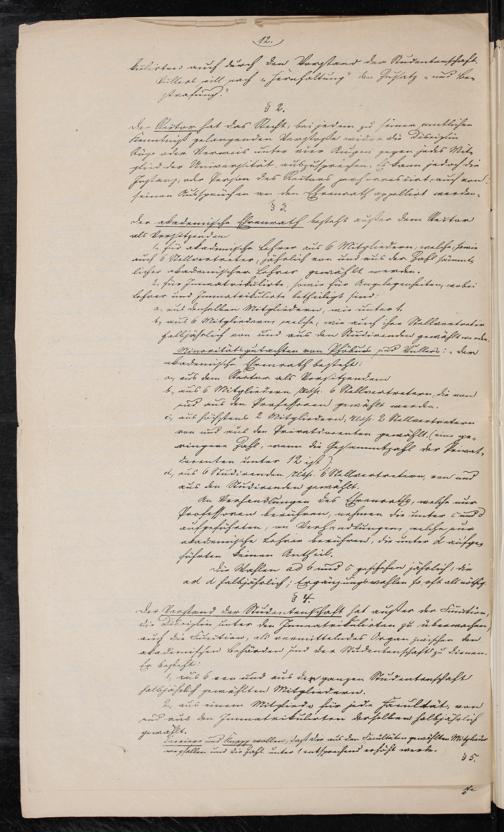 12.
kulirten auch durch den Vorstand der Studentenschaft.
Vullers will nach "Fernhaltung" den Zusatz "und Be-
strafung."
§ 2.
Der Rector hat das Recht, bei jedem zu seiner amtlichen
Kenntniß gelangenden Verstoße wider die Disciplin
Rüge oder Verweis unter vier Augen gegen jedes Mit-
glied der Universität auszusprechen. Es kann jedoch die
Instanz, oder Person des Rectors perhorrescirt, auch von
seinen Aussprüchen an den Ehrenrath appellirt werden.
§ 3.
Der akademische Ehrenrath besteht außer dem Rector
als Vorsitzenden
1, für akademische Lehrer aus 6 Mitgliedern, welche, sowie
auch 6 Stellvertreter, jährlich von und aus der Zahl sämmt-
licher akademischer Lehrer gewählt werden.
2, für Immatrikulirte, sowie für Angelegenheiten, wobei
Lehrer und Immatrikulirte betheiligt sind:
a, aus denselben Mitgliedern, wie unter 1.
b, aus 6 Mitgliedern, welche, wie auch ihre Stellvertreter
halbjährlich von und aus den Studirenden gewählt werden.
Minoritätsgutachten von und Vullers: "Der
akademische Ehrenrath besteht:
a, aus dem Rector als Vorsitzenden
b, aus 6 Mitgliedern, resp. 6 Stellvertretern, die von
und aus den Professoren gewählt werden.
c, aus höchstens 2 Mitgliedern, resp. 2 Stellvertretern
von und aus den Privatdocenten gewählt (eine ge-
ringere Zahl, wenn die Gesammtzahl der Privat-
docenten unter 12 ist)
d, aus 6 Studirenden resp. 6 Stellvertretern, von und
aus den Studirenden gewählt.
An Verhandlungen des Ehrenraths, welche nur
Professoren berühren, nehmen die unter c und d
aufgeführten, an Verhandlungen, welche nur
akademische Lehrer berühren, die unter d aufge-
führten keinen Antheil.
Die Wahlen ad b und c geschehen jährlich, die
ad d halbjährlich; Ergänzungswahlen so oft als nöthig.
§ 4.
Der Vorstand der Studentenschaft hat außer der Function,
die Disciplin unter den Immatrikulirten zu überwachen,
auch die Function, als vermittelndes Organ zwischen den
akademischen Behörden und der Studentenschaft zu dienen.
Er besteht:
1, aus 6 von und aus der ganzen Studentenschaft
halbjährlich gewählten Mitgliedern.
2, aus einem Mitgliede für jede Facultät, von
und aus den Immatrikulirten derselben halbjährlich
gewählt.
und Knapp wollen, daß der aus den Facultäten gewählten Mitglieder
wegfallen und die Zahl unter 1 entsprechend erhöht werde.
§ 5.